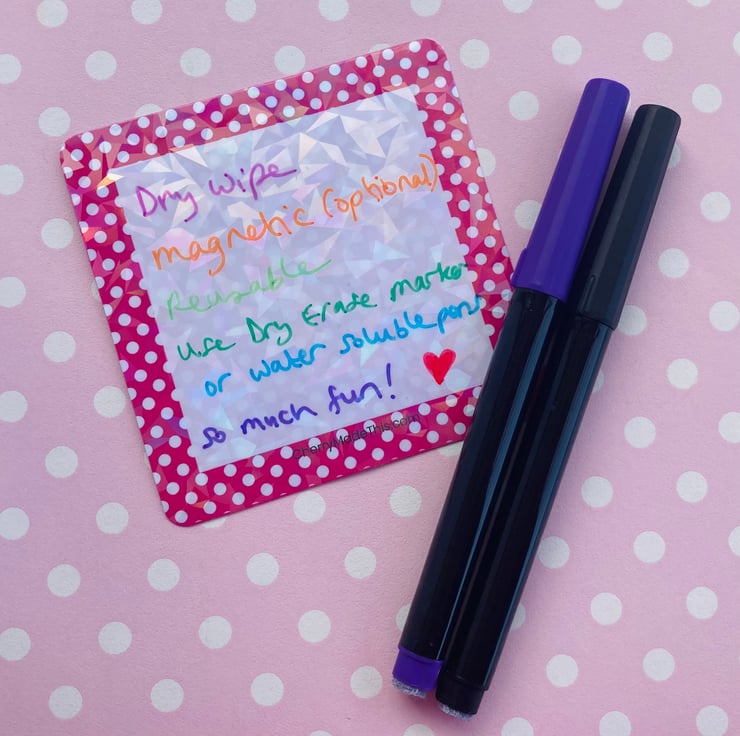 Dry Wipe
magnetic (optional)
Reusable
Use Dry Erase marker
or water soluble pens
so much fun!
CherryMadeThis.com